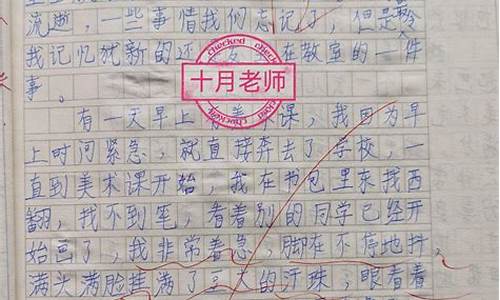 流逝，一些事情我们忘记了，但是令
我记忆犹新的还 在教室的一件
事。
checked checked
十月老师
checked checked
有一天早上有美术课，我因为早
上时间紧急，就直接奔去了学校，一
直到美术课开始，我在书包里东找西
翻，找不到笔，看着别的同学已经开
始画了，我非常着急，脚在不停地抖，
满头满脸挂满了豆大的汗珠，眼看着